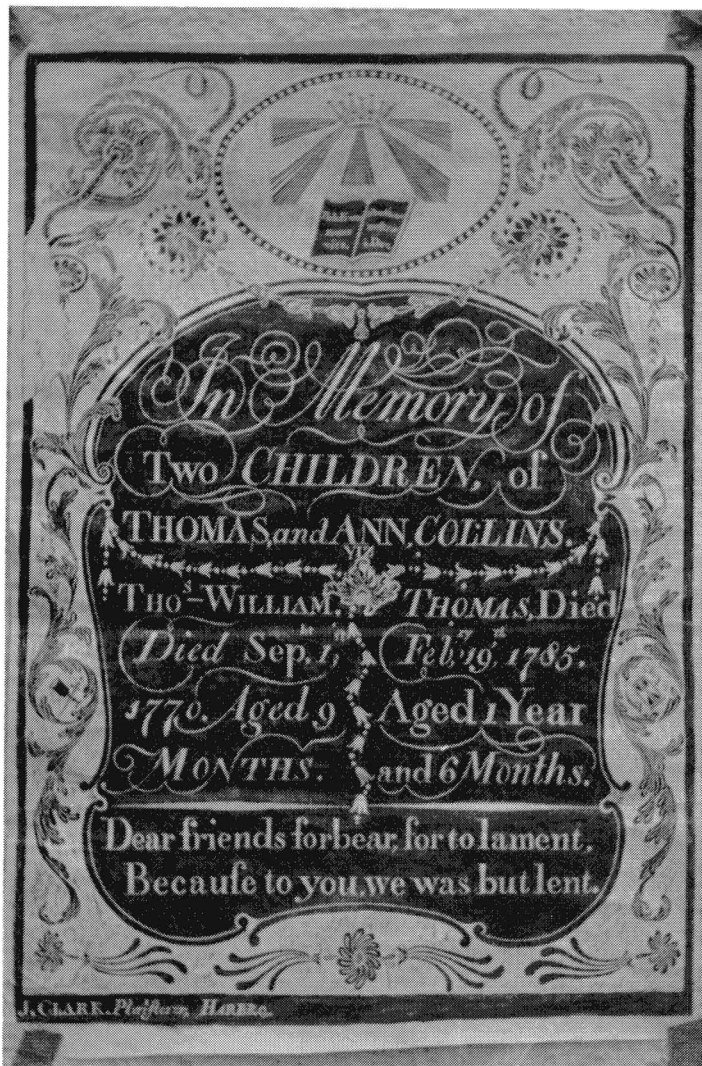 In Memory of
Two CHILDREN, of
THOMAS, and ANN, COLLINS.
VIZ
THOˢ-WILLIAM.
Died Sep. 1,
1770. Aged 9
MONTHS.
THOMAS, Died
Feb, 19, 1785.
Aged 1 Year
and 6 Months.
Dear friends forbear, for to lament,
Becauſe to you, we was but lent.
J. CLARK. Plaiſterer, HARBRO.